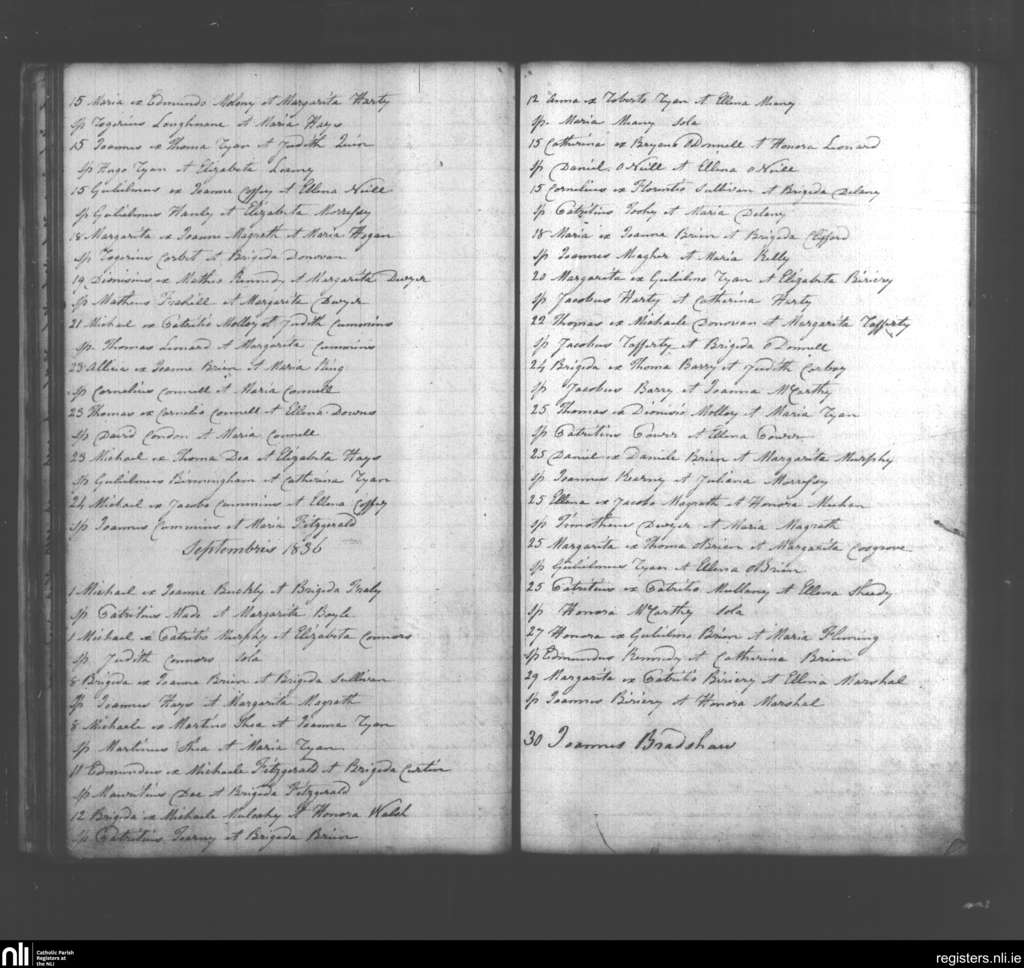 15 Maria ex Edmundo Molony et Margarita Harty
Sp Rogerius Loughnane et Maria Hays
15 Joannes ex Thoma Ryan et Judith Quin
Sp Hugo Ryan et Elizabeta
15 Gulielmus ex Joanne Coffey et Ellena Neill
Sp Gulielmus Hanly et Elizabeta Morrissy
18 Margarita ex Joanne Magrath et Maria Hogan
Sp Rogerius Corbet et Brigida Donovan
19 Dionisius ex Matheo Kennedy et Margarita Dwyer
Sp Matheus et Margarita Dwyer
21 Michael ex Patritio Molloy et Judith Cummins
Sp. Thomas Leonard et Margarita Cummins
23 Allicia ex Joanne Brien et Maria King
Sp Cornelius Connell et Maria Connell
23 Thomas ex Cornelio Connell et Ellena Downs
Sp David Condon et Maria Connell
23 Michael ex Thoma Dea et Elizabeta Hays
Sp Gulielmus Birmingham et Catherina Ryan
24 Michael ex Jacobo Cummins et Ellena Coffey
Sp Joannes Cummins et Maria Fitzgerald
Septembris 1836
1 Michael ex Joanne Buckly et Brigida Fraly
Sp Patritius Wade et Margarita Boyle
1 Michael ex Patritio Murphy et Elizabeta Connors
Sp Judith Connors sola
8 Brigida ex Joanne Brien et Brigida Sullivan
Sp Joannes Hays et Margarita Magrath
8 Michaele ex Martino Shea et Joanna Ryan
Sp Martinus Shea et Maria Ryan
11 Edmundus ex Michaele Fitzgerald et Brigida Curtin
Sp Mauritius Dee et Brigida Fitzgerald
12 Brigida ex Michaele Mulcahy et Honora Walsh
Sp Patritius Kearny et Brigida Brien
12 Anna ex Roberto Ryan et Ellena Meany
Sp. Maria Meany sola
15 Catherina ex Bryano ODonnell et Honora Leonard
Sp Daniel O Neill et Ellena O Neill
15 Cornelius ex Florentio Sullivan et Brigida Delany
Sp Patritius Toohy et Maria Delany
18 Maria ex Joanna Brien et Brigida Clifford
Sp Joannes Magher et Maria Kelly
20 Margarita ex Gulielmo Ryan et Elizabeta Biriery
Sp Jacobus Harty et Catherina Harty
22 Thomas ex Michaele Donovan et Margarita Rafferty
Sp Jacobus Rafferty et Brigida ODonnell
24 Brigida ex Thoma Barry et Judith Corboy
Sp Jacobus Barry et Joanna McCarthy
25 Thomas ex Dionisio Molloy et Maria Ryan
Sp Patritius Powrr et Ellena Powrr
25 Daniel ex Daniele Brien et Margarita Murphy
Sp Joannes Kearny et Juliana Morrissy
25 Ellena ex Jacobo Magrath et Honora Meehan
Sp Timotheus Dwyer et Maria Magrath
25 Margarita ex Thoma OBrien et Margarita Cosgrove
Sp Gulielmus Ryan et Ellena OBrien
25 Patritius ex Patritio Mullany et Ellena Sheedy
Sp Honora McCarthy sola
27 Honora ex Gulielmo Brien et Maria Fleming
Sp Edmundus Kennedy et Catherina Brien
29 Margarita ex Patritio Biriery et Ellena Marshal
Sp Joannes Biriery et Honora Marshal
30 Joannes Bradshaw
nli Catholic Parish Registers at the NLI
registers.nli.ie